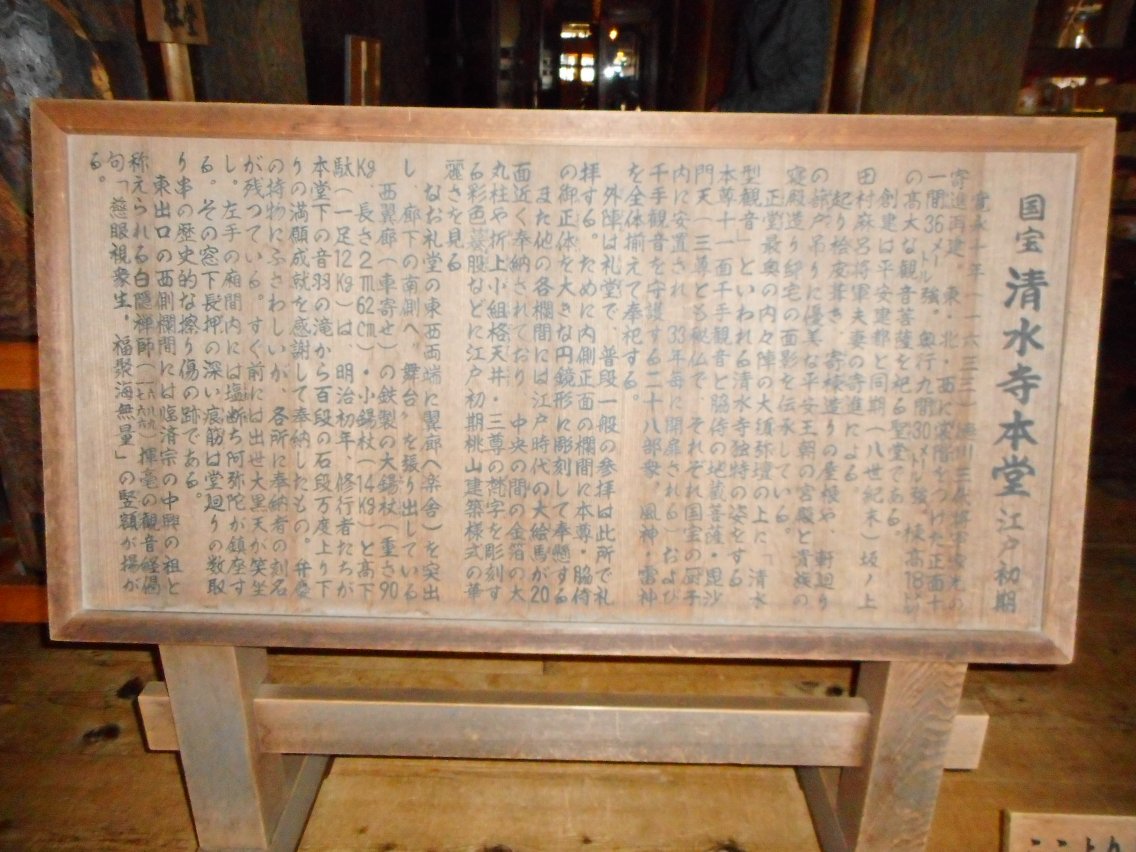 国宝 清水寺本堂 江戸初期
寛永十年(一六三三)徳川三代将軍家光の
寄進再建。東・北・西に裳階をつけた正面十
一間36メートル強、奥行九間30メートル強、棟高18
の高大な観音菩薩を祀る聖堂である。
創建は平安建都と同期(八世紀末)坂ノ上
田村麻呂将軍夫妻の寄進による。
起り桧皮葺き、寄棟造りの屋根や、軒廻り
の蔀戸吊りに優美な平安王朝の宮殿と貴族の
寝殿造り邸宅の面影を伝承している。
正堂最奥の内々陣の大須弥壇の上に「清水
型観音」といわれる清水寺独特の姿をする
本尊十一面千手観音と脇侍の地蔵菩薩・毘沙
門天(三尊とも秘仏で、それぞれ国宝の厨子
内に安置され、33年毎に開扉される)および
千手観音を守護する二十八部衆、風神・雷神
を全体揃えて奉祀する。
外陣は礼堂で、普段一般の参拝は此所で礼
拝する。ために内側正面の欄間に本尊・脇侍
の御正体を大きな円鏡形に彫刻して奉懸する
また他の各欄間には江戸時代の大絵馬が20
面近く奉納されており、中央の間の金箔の大
丸柱や折上小組格天井・三尊の梵字を彫刻す
る彩色蟇股などに江戸初期桃山建築様式の華
麗さを見る
なお礼堂の東西両端に翼廊(楽舎)を突出
し、廊下の南側へ〝舞台〟を張り出している
西翼廊(車寄せ)の鉄製の大錫杖(重さ90
Kg、長さ2m62cm)・小錫杖(14Kg)と高下
駄(一足12Kg)は、明治初年、修行者たちが
本堂下の音羽の滝から百段の石段万度上り下
りの満願成就を感謝して奉納したもの。弁慶
の持物にふさわしいが、各所に奉納者の刻名
が残っている。すぐ前には出世大黒天が笑坐
し。左手の廂間内には塩断ち阿弥陀が鎮座す
る。その窓下長押の深い痕筋は堂廻りの数取
り串の歴史的な擦り傷の跡である。
東出口の西側欄間には臨済宗の中興の祖と
称えられる白隠禅師 揮毫の観音経偈
句「慈眼視衆生、福聚海無量」の竪額が揚が
る。
ここより